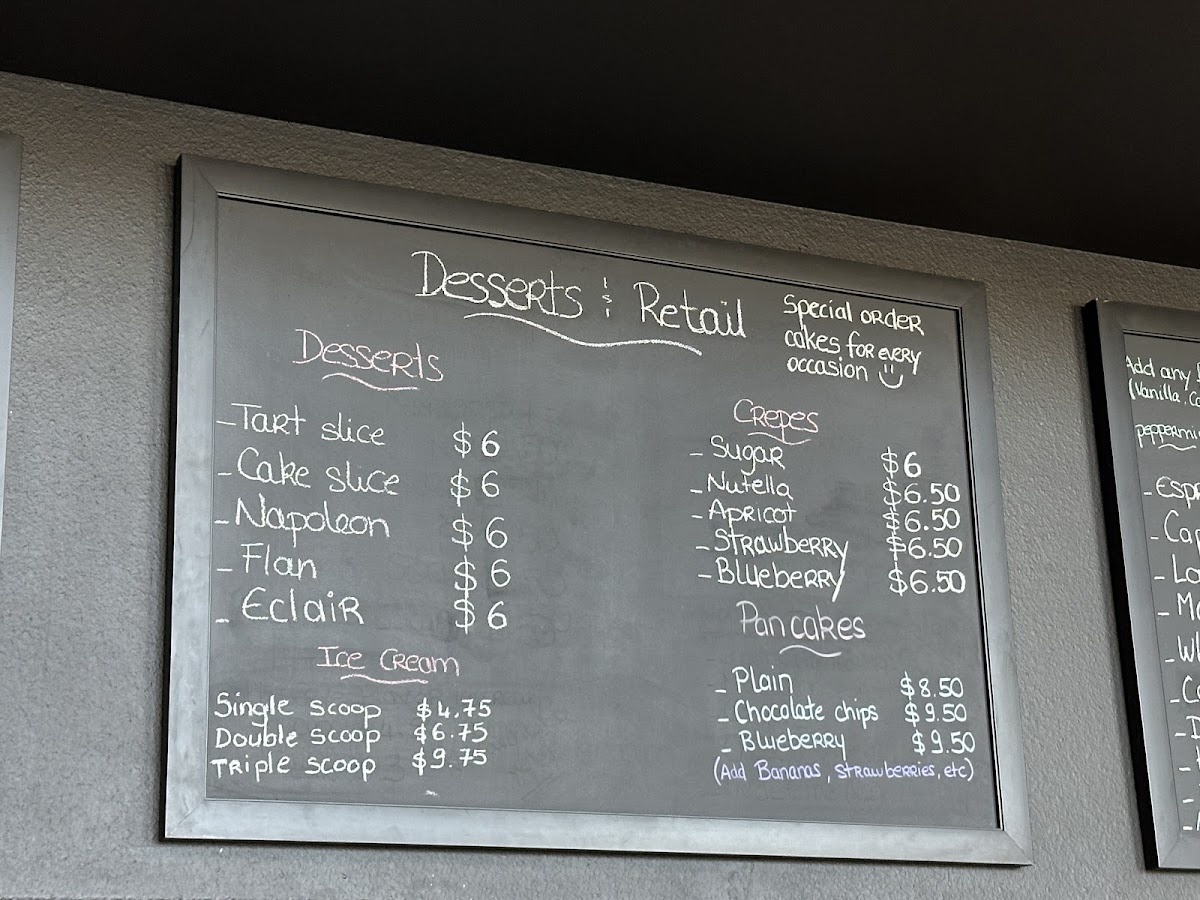 Desserts & Retail
Special order
cakes for every
occasion
Desserts
- Tart slice $6
- Cake slice $6
- Napoleon $6
- Flan $6
- Eclair $6
Ice Cream
Single scoop $4.75
Double scoop $6.75
Triple scoop $9.75
Crepes
- Sugar $6
- Nutella $6.50
- Apricot $6.50
- Strawberry $6.50
- Blueberry $6.50
Pancakes
- Plain $8.50
- Chocolate chips $9.50
- Blueberry $9.50
(Add Bananas, strawberries, etc)
Add any
(Vanilla,